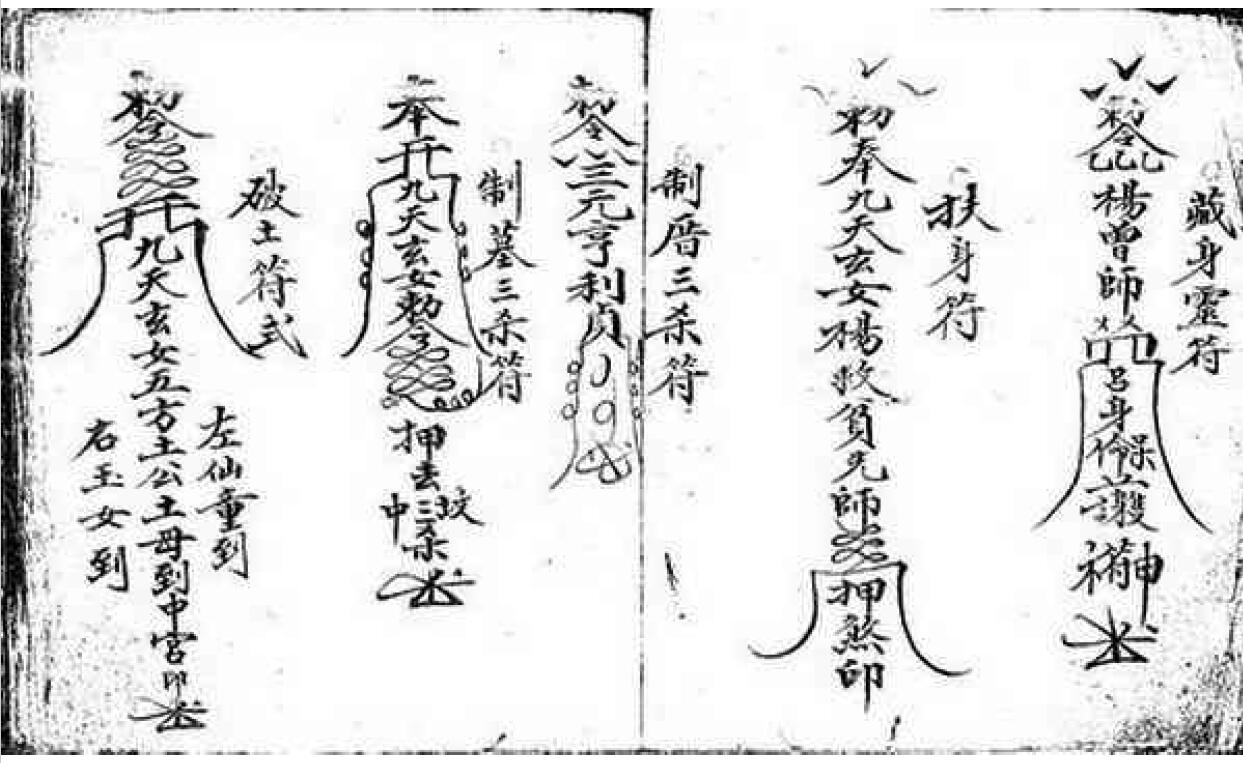 藏身靈符
勅令楊曾師呂身保護神
扶身符
勅奉九天玄女楊救貧先師押煞印
制厝三杀符
勅令三元亨利貞
制墓三杀符
奉九天玄女勅令押去坟中三杀
破土符式
勅令九天玄女五方土公土母到中宮印
左仙童到
右玉女到